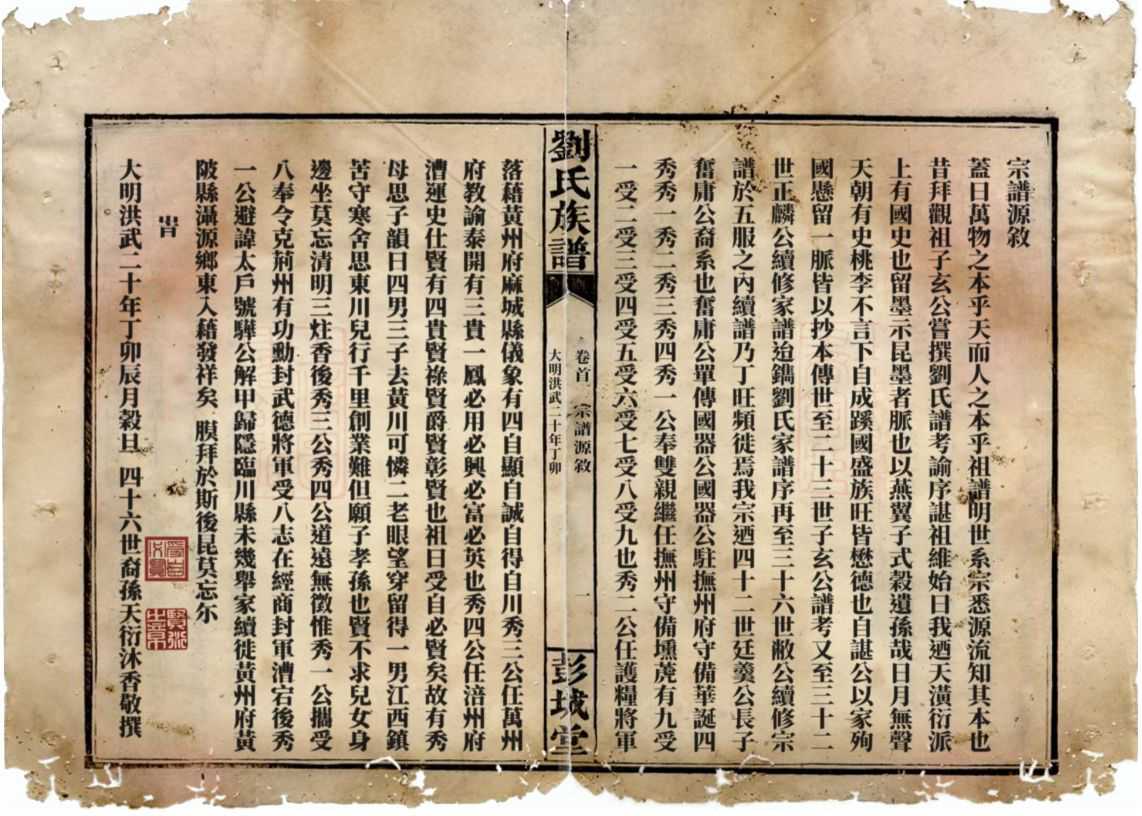 宗譜源敘
蓋曰萬物之本乎天而人之本乎祖譜明世系宗悉源流知其本也
昔拜觀祖子玄公嘗撰劉氏譜考諭序諶祖維始曰我迺天潢衍派
上有國史也留墨示昆墨者脈也以燕翼子式穀遺孫哉日月無聲
天朝有史桃李不言下自成蹊國盛族旺皆懋德也自諶公以家殉
國懸留一脈皆以抄本傳世至二十三世子玄公譜考又至三十二
世正麟公續修家譜迨鐫劉氏家譜序再至三十六世敝公續修宗
譜於五服之內續譜乃丁旺頻徙焉我宗迺四十二世廷羹公長子
奮庸公裔系也奮庸公單傳國器公國器公駐撫州府守備華誕四
秀秀一秀二秀三秀四秀一公奉雙親繼任撫州守備壎虎有九受
一受二受三受四受五受六受七受八受九也秀二公任護糧將軍
劉氏族譜
卷首 宗譜源敘 一
大明洪武二十年丁卯
彭城堂
落藉黃州府麻城縣儀象有四自顯自誠自得自川秀三公任萬州
府教諭泰開有三貴一鳳必用必興必富必英也秀四公任涪州府
漕運史仕賢有四貴賢祿賢爵賢彰賢也祖曰受自必賢矣故有秀
母思子韻曰四男三子去黃川可憐二老眼望穿留得一男江西鎮
苦守寒舍思東川兒行千里創業難但願子孝孫也賢不求兒女身
邊坐莫忘清明三炷香後秀三公秀四公道遠無徵惟秀一公攜受
八奉令克荊州有功勳封武德將軍受八志在經商封軍漕宕後秀
一公避諱太戶號驊公解甲歸隱臨川縣未幾舉家續徙黃州府黃
陂縣灄源鄉東入藉發祥矣 膜拜於斯後昆莫忘尔
旹
大明洪武二十年丁卯辰月穀旦 四十六世裔孫天衍沐香敬撰